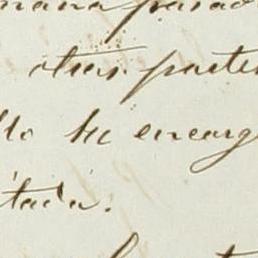 mana pasad
otras parte
llo su encarg
itada.